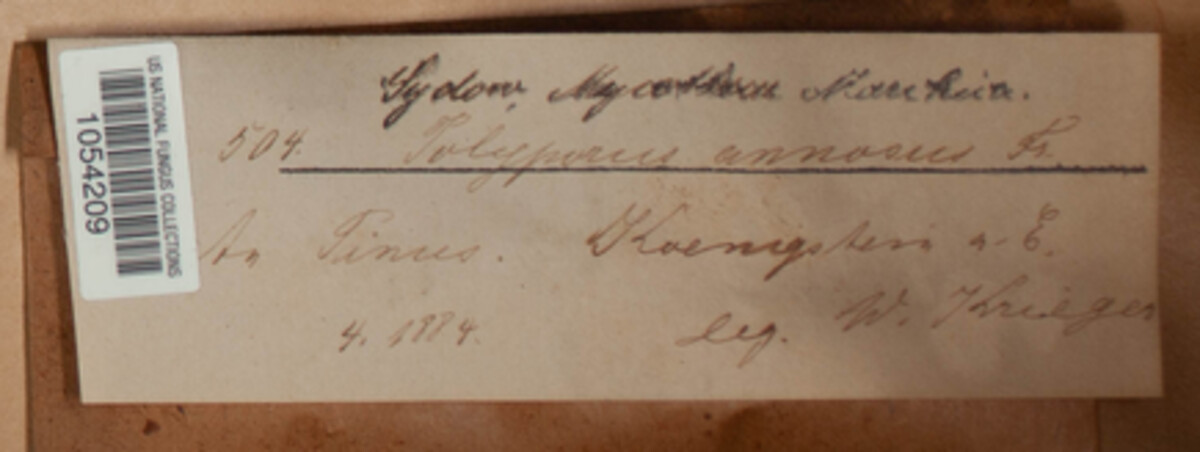 Sydow, Mycotheca Marchica.
504. Polyporus annosus Fr.
An Pinus. Koenigstein a. E.
4. 1884. leg. W. Krieger
US NATIONAL FUNGUS COLLECTIONS
1054209